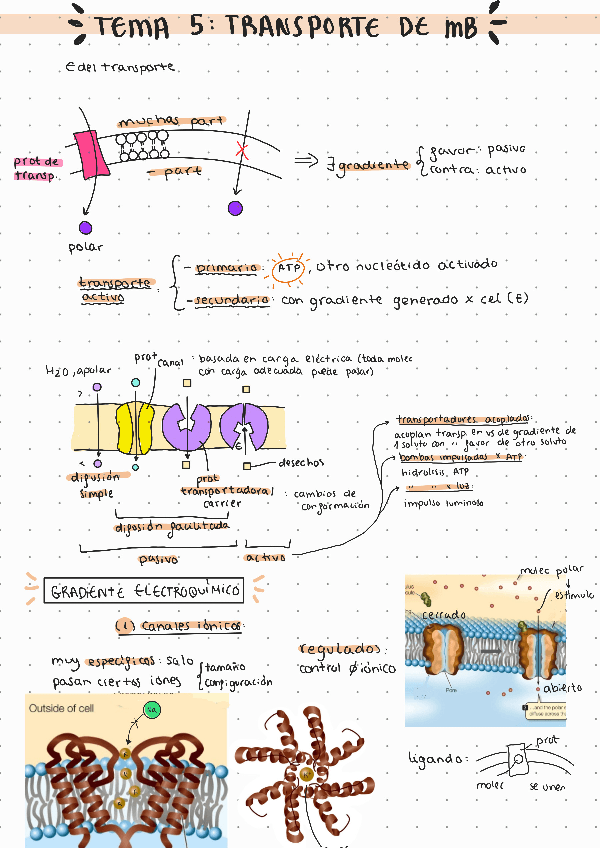 TEMA 5: TRANSPORTE DE mB
E del transporte.
muchas part
prot de
transp.
- part
polar
⇒ ∃ gradiente
favor: pasivo
contra: activo
transporte
activo
- primario: ATP, otro nucleótido activado
- secundario: con gradiente generado x cel (E)
H2O, apolar
prot canal: basada en carga eléctrica (toda molec
con carga adecuada puede pasar)
difusión
simple
prot
transportadora/
carrier
: cambios de
conformación
desechos
difusión facilitada
pasivo
activo
transportadores acoplados:
acoplan transp. en vs de gradiente de
1 soluto con " favor de otro soluto
bombas impulsadas x ATP:
hidrólisis ATP
" " x luz:
impulso luminoso
GRADIENTE ELECTROQUÍMICO
(1) Canales iónicos:
muy específicos: solo
pasan ciertos iones
tamaño
configuración
regulados:
control Ø iónico
molec polar
estímulo
cerrado
Pore
abierto
Outside of cell
ligando:
prot
molec
se unen